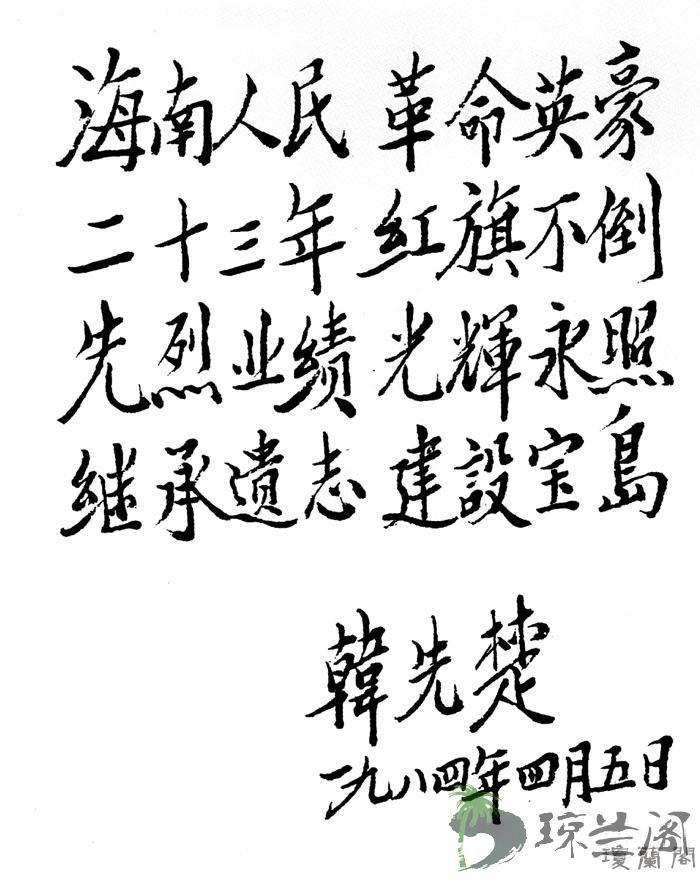 海南人民 革命英豪
二十三年 红旗不倒
先烈业绩 光輝永照
继承遗志 建設宝島
韓先楚
一九八四年四月五日
琼兰阁
瓊蘭閣